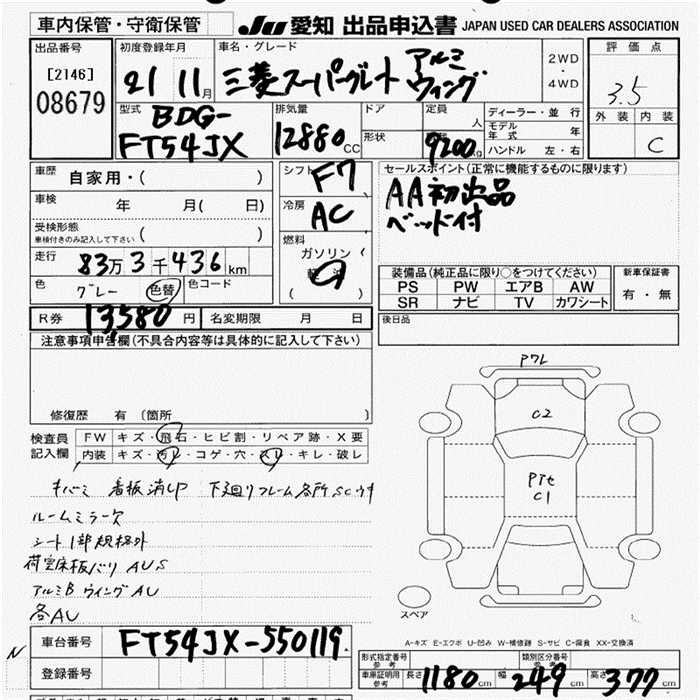 車内保管・守衛保管
JU 愛知 出品申込書 JAPAN USED CAR DEALERS ASSOCIATION
出品番号
[2146]
08679
初度登録年月
21 年 11 月
車名・グレード
三菱スーパーグレート アルミウィング
2WD
・
4WD
評価点
3.5
外装 内装
C
型式
BDG-
FT54JX
排気量
12880 CC
ドア
形状
定員
人
9200 kg
ディーラー・並行
モデル年式 年
ハンドル 左・右
車歴
自家用・( )
車検
年 月( 日)
受検形態
車検付きのみ記入して下さい ( )
走行
83万3千436 km
色
グレー
色替
色コード
シフト
F7
冷房
AC
燃料
ガソリン
軽油
( )
セールスポイント(正常に機能するものに限ります)
AA初出品
ベッド付
装備品(純正品に限り○をつけてください)
PS PW エアB AW
SR ナビ TV カワシート
新車保証書
有・無
R券 13,580 円 名変期限 月 日
後日品
注意事項申告欄(不具合内容等は具体的に記入して下さい)
修復歴 有(箇所 )
検査員
記入欄
FW キズ・飛石・ヒビ割・リペア跡・X要
内装 キズ・汚レ・コゲ・穴・スレ・キレ・破レ
キバミ 看板消UP 下廻りフレーム各所SCサキ
ルームミラー欠
シート1部規格外
荷室床板バリ AUS
アルミB ウィングAU
各AU
P7L
C2
PTE
C1
スペア
A-キズ E-エクボ U-凹み W-補修跡 S-サビ C-腐食 XX-交換済
N
車台番号 FT54JX-550119.
登録番号
形式指定番号
参考
類別区分番号
参考
車庫証明用
参考
長さ 1180 cm 幅 249 cm 高さ 377 cm